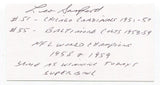 Leo Sanford
#51 - CHICAGO CARDINALS 1951-57
#55 - BALTIMORE COLTS 1958-59
NFL WORLD CHAMPIONS
1958 & 1959
SAME AS WINNING TODAYS
SUPERBOWL